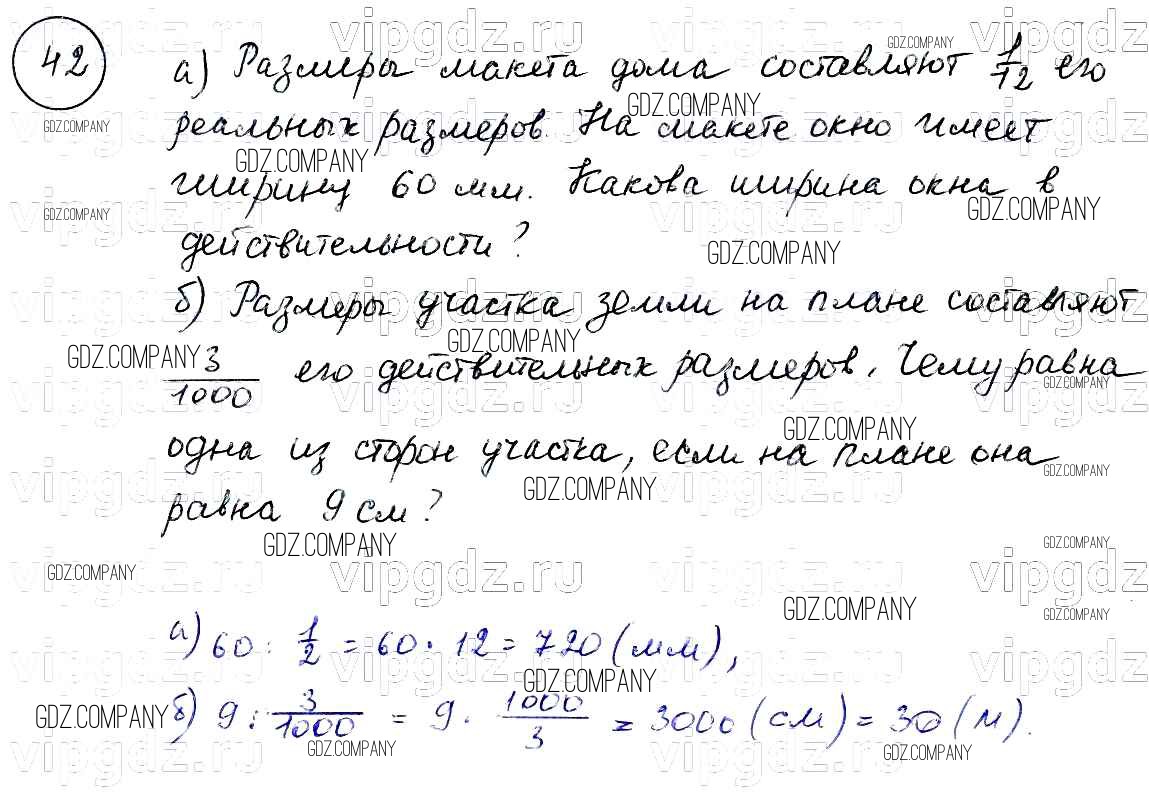 42
а) Размеры макета дома составляют 1/12 его
реальных размеров. На макете окно имеет
ширину 60 мм. Какова ширина окна в
действительности?
б) Размеры участка земли на плане составляют
3/1000 его действительных размеров. Чему равна
одна из сторон участка, если на плане она
равна 9 см?
а) 60 : 1/2 = 60 · 12 = 720 (мм),
б) 9 : 3/1000 = 9 · 1000/3 = 3000 (см) = 30 (м).
vipgdz.ru
GDZ.COMPANY